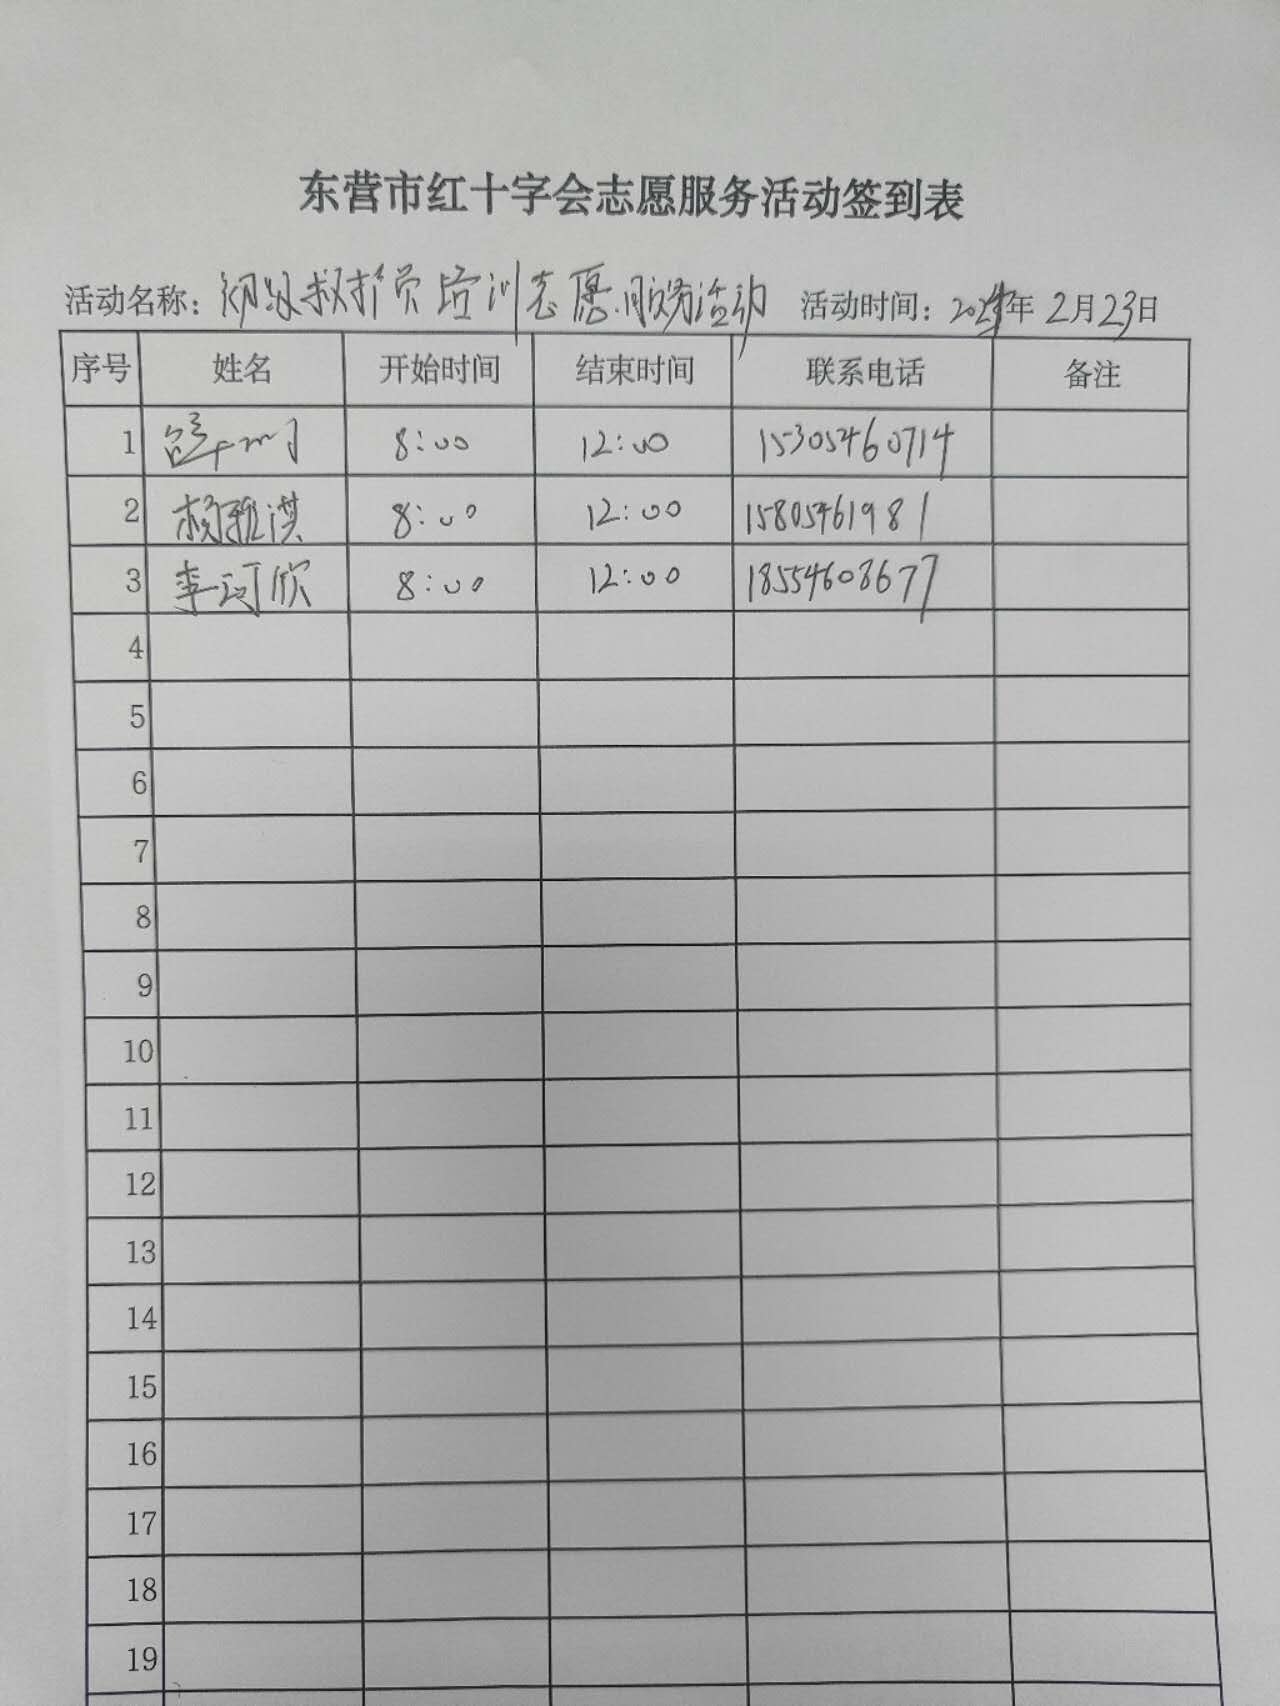 东营市红十字会志愿服务活动签到表
活动名称：初级救护员培训志愿服务活动 活动时间：年2月23日
序号 姓名 开始时间 结束时间 联系电话 备注
1 8:00 12:00 15305460714
2 赖雅淇 8:00 12:00 15805461981
3 李可欣 8:00 12:00 18554608677
4
5
6
7
8
9
10
11
12
13
14
15
16
17
18
19